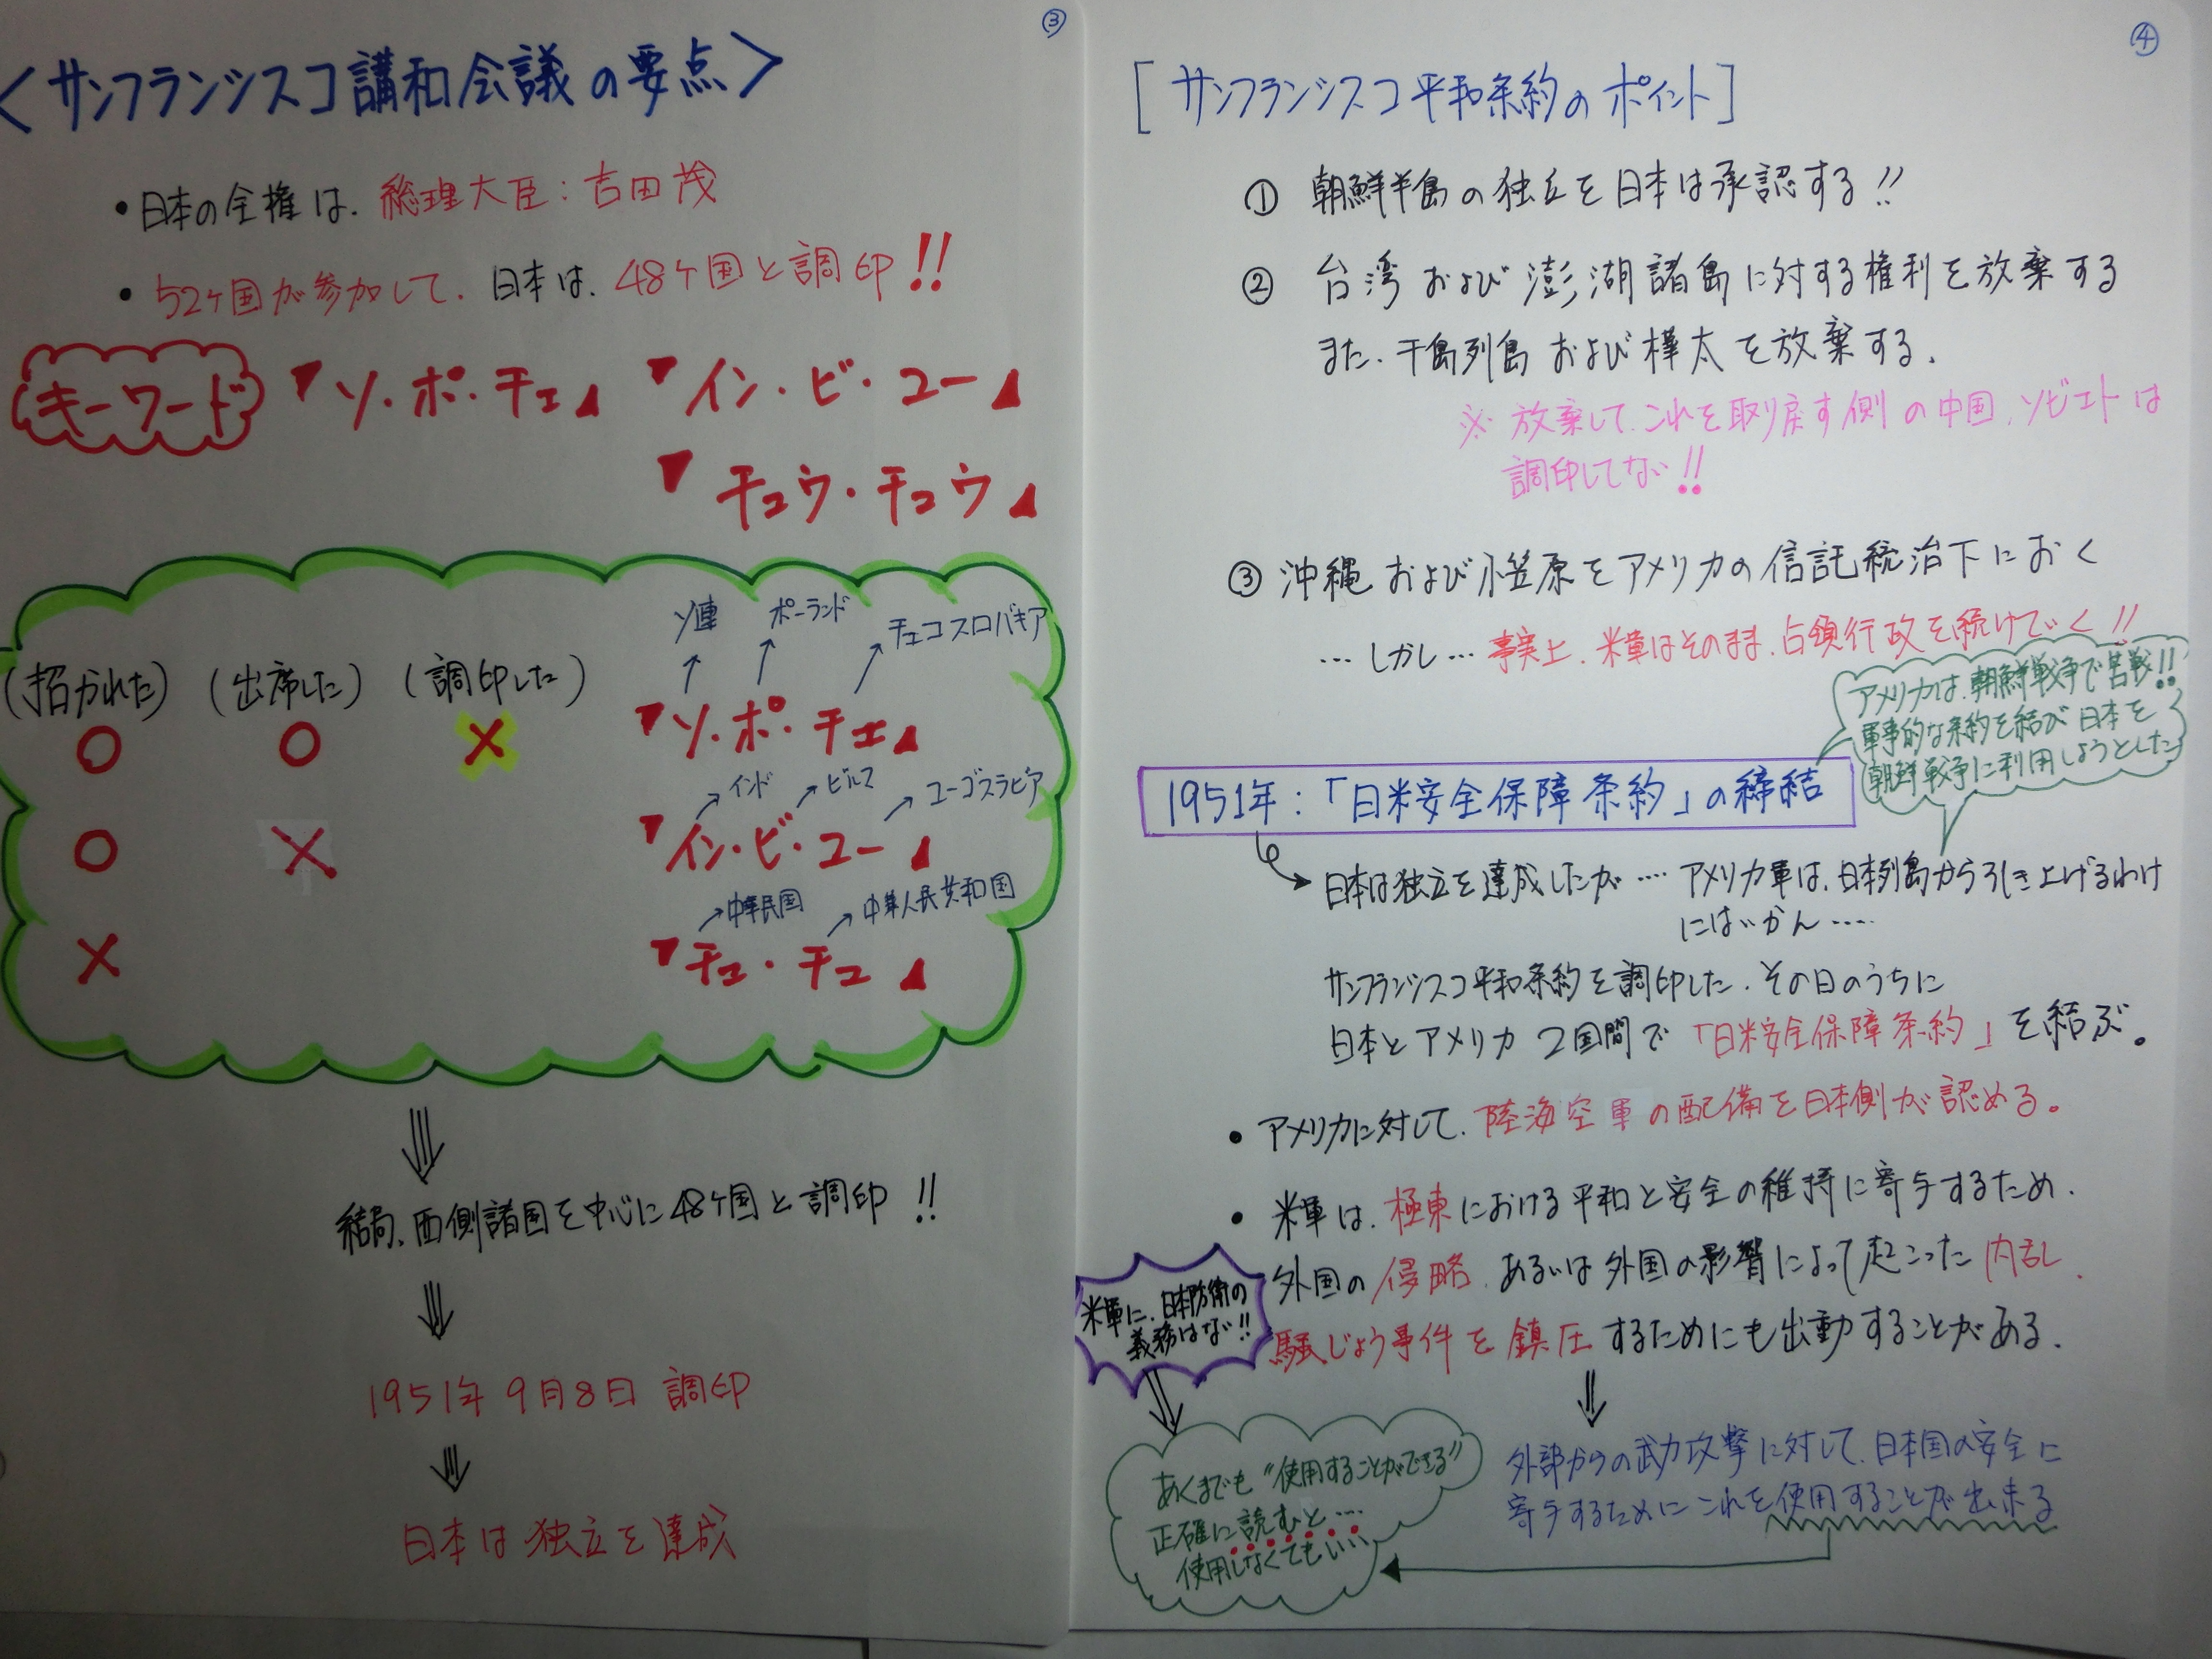 ③
<サンフランシスコ講和会議の要点>
・日本の全権は、総理大臣：吉田茂
・52ヶ国が参加して、日本は、48ヶ国と調印!!
キーワード 「ソ・ポ・チェ」 「イン・ビ・ユー」
「チュウ・チュウ」
ソ連 ポーランド チェコスロバキア
(招かれた) (出席した) (調印した)
○ ○ × 「ソ・ポ・チェ」
インド ビルマ ユーゴスラビア
○ × 「イン・ビ・ユー」
中華民国 中華人民共和国
× 「チュ・チュ」
結局、西側諸国を中心に48ヶ国と調印!!
1951年9月8日 調印
日本は独立を達成
④
[サンフランシスコ平和条約のポイント]
① 朝鮮半島の独立を日本は承認する!!
② 台湾および澎湖諸島に対する権利を放棄する
また、千島列島および樺太を放棄する。
※放棄して、これを取り戻す側の中国、ソビエトは
調印してない!!
③ 沖縄および小笠原をアメリカの信託統治下におく
…しかし…事実上、米軍はそのまま、占領行政を続けていく!!
アメリカは、朝鮮戦争で苦戦!!
軍事的な条約を結び日本を
朝鮮戦争に利用しようとした
1951年：「日米安全保障条約」の締結
日本は独立を達成したが…. アメリカ軍は、日本列島から引き上げるわけ
にはいかん…..
サンフランシスコ平和条約を調印した、その日のうちに
日本とアメリカ 2国間で「日米安全保障条約」を結ぶ。
・アメリカに対して、陸海空軍の配備を日本側が認める。
・米軍は、極東における平和と安全の維持に寄与するため、
外国の侵略、あるいは外国の影響によって起こった内乱、
騒じょう事件を鎮圧するためにも出動することがある。
米軍に、日本防衛の
義務はない!!
外部からの武力攻撃に対して、日本国の安全に
寄与するためにこれを使用することが出来る
あくまでも"使用することができる"
正確に読むと…
使用しなくてもいい…